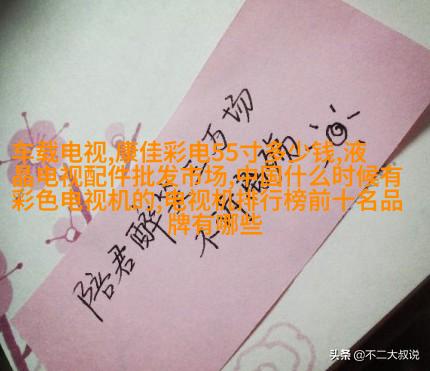 车载电视,康佳彩电55寸多少钱,液
晶电视配件批发市场,中国什么时候有
彩色电视机的,电视机排行榜前十名品
牌有哪些
陪君醉笑三万场
不
头条 @不二大叔说